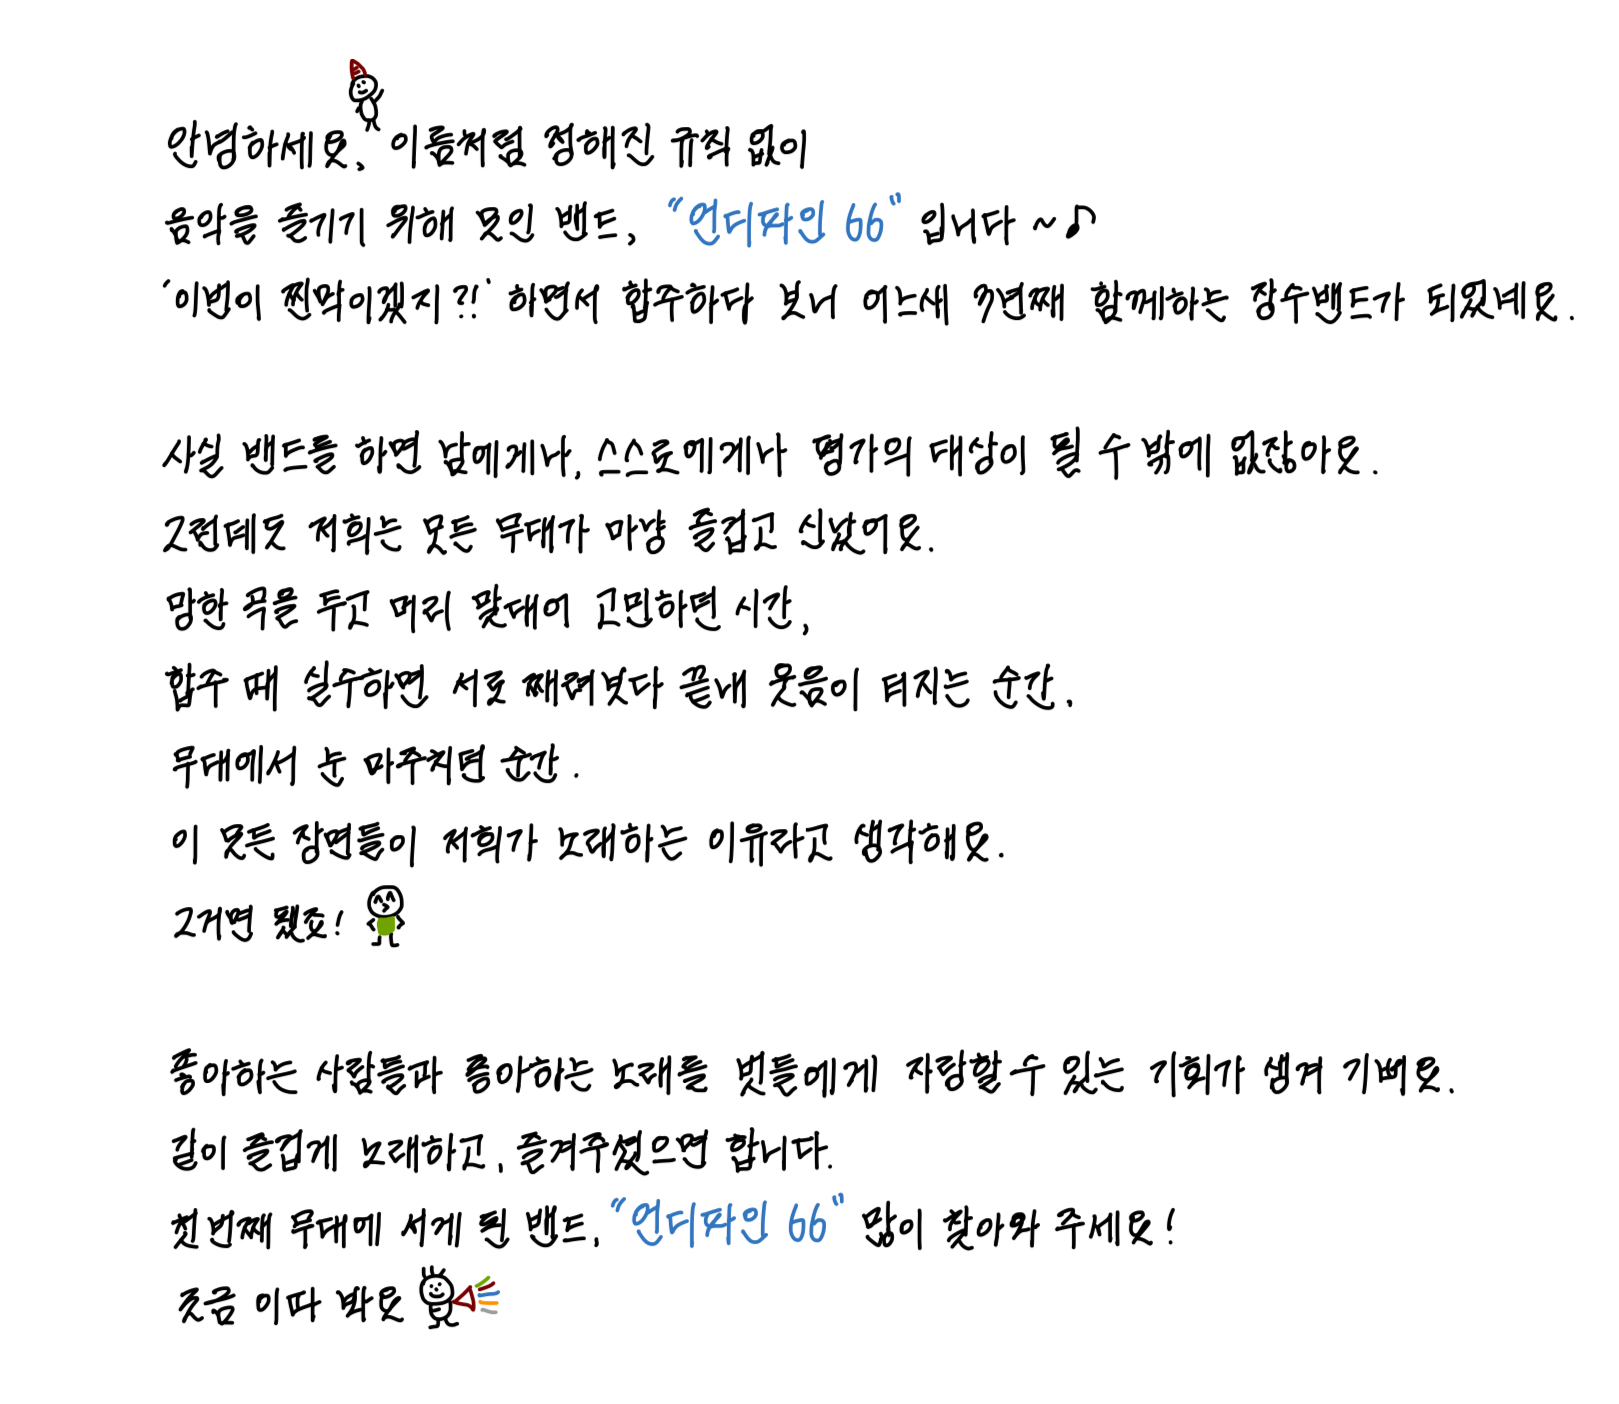 안녕하세요, 이름처럼 정해진 규칙 없이
음악을 즐기기 위해 모인 밴드, "언디파인 66" 입니다 ~♪
'이번이 찐막이겠지?!' 하면서 합주하다 보니 어느새 3년째 함께하는 장수밴드가 되었네요.
사실 밴드를 하면 남에게나, 스스로에게나 평가의 대상이 될 수 밖에 없잖아요.
그런데도 저희는 모든 무대가 마냥 즐겁고 신났어요.
망한 곡을 두고 머리 맞대어 고민하던 시간,
합주 때 실수하면 서로 째려보다 끝내 웃음이 터지는 순간,
무대에서 눈 마주치던 순간.
이 모든 장면들이 저희가 노래하는 이유라고 생각해요.
그거면 됐죠!
좋아하는 사람들과 좋아하는 노래를 벗들에게 자랑할 수 있는 기회가 생겨 기뻐요.
같이 즐겁게 노래하고, 즐겨주셨으면 합니다.
첫번째 무대에 서게 된 밴드, "언디파인 66" 많이 찾아와 주세요!
조금 이따 봐요